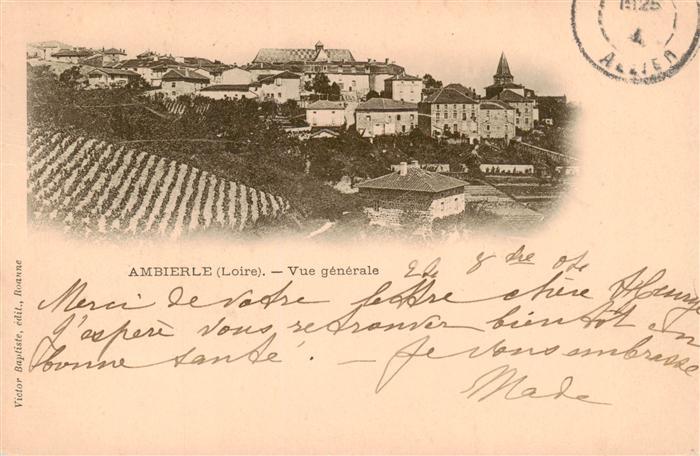 1925
4
ALLIER
AMBIERLE (Loire). — Vue générale
Victor Baptiste, édit., Roanne
8bre 04
Merci de votre lettre chère
J'espère vous retrouver bientôt en
bonne santé. — Je vous embrasse
Made